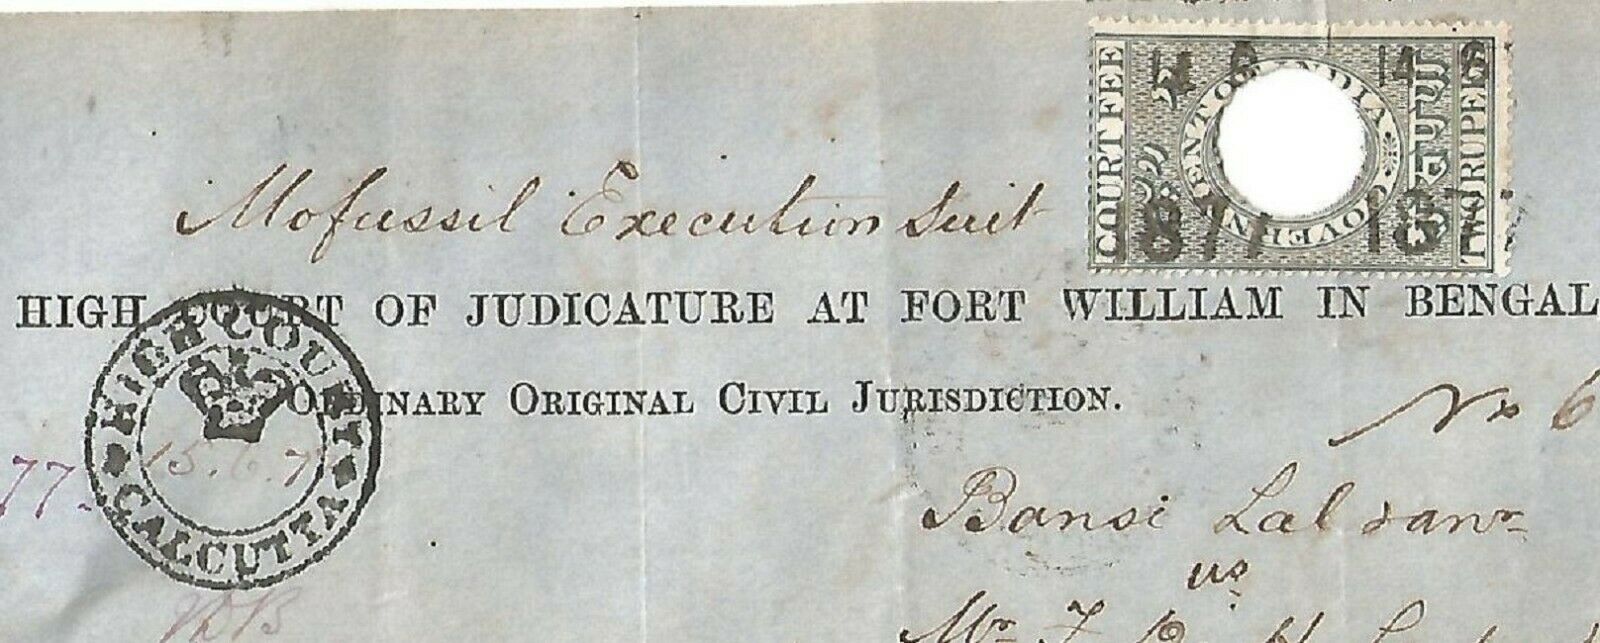 COURT FEE
GOVERNMENT OF INDIA
TWO RUPEES
14 6 14 6
1877 187
Mofussil Execution Suit
HIGH COURT OF JUDICATURE AT FORT WILLIAM IN BENGAL
ORDINARY ORIGINAL CIVIL JURISDICTION.
No 6
HIGH COURT
15.6.7
CALCUTTA
77.
Bansi Lal & anr
vs
Mr F.